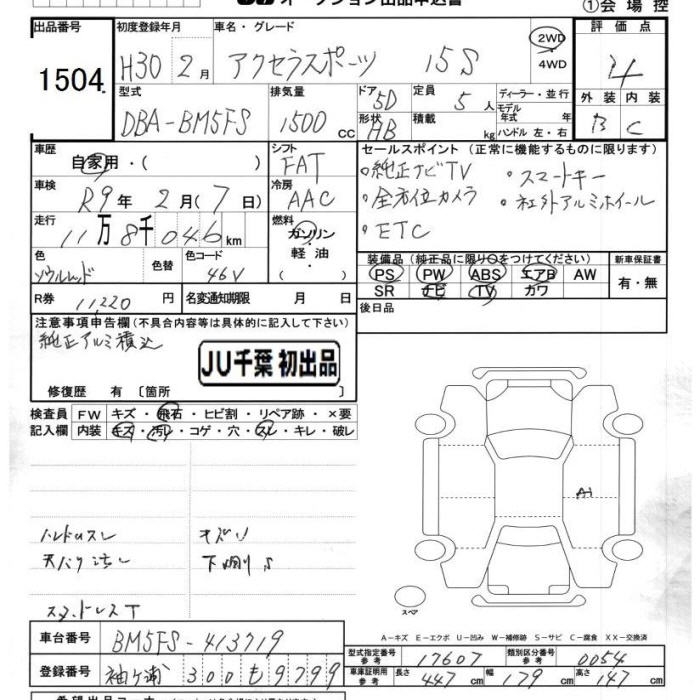 オークション出品申込書
①会場控
出品番号 1504
初度登録年月 H30 2月
車名・グレード アクセラスポーツ 15S
2WD
4WD
評価点 4
外装 内装
B C
型式 DBA-BM5FS
排気量 1500 CC
ドア 5D
形状 HB
定員 5人
積載 kg
ディーラー・並行
モデル年式 年
ハンドル 左・右
車歴 自家用・( )
シフト FAT
車検 R9年 2月(7日)
冷房 AAC
走行 11万8千046km
燃料 ガソリン・軽油・( )
色 ソウルレッド
色替
色コード 46V
R券 11,220円
名変通知期限 月 日
セールスポイント (正常に機能するものに限ります)
・純正ナビTV ・スマートキー
・全方位カメラ ・社外アルミホイール
・ETC
装備品(純正品に限り○をつけてください)
PS PW ABS エアB AW
SR ナビ TV カワ
新車保証書
有・無
後日品
注意事項申告欄(不具合内容等は具体的に記入して下さい)
純正アルミ積込
JU千葉 初出品
修復歴 有〔箇所 〕
検査員 FW キズ・飛石・ヒビ割・リペア跡・×要
記入欄 内装 キズ・汚レ・コゲ・穴・スレ・キレ・破レ
ハンドルスレ キズU
天バリ汚レ 下廻りS
スタッドレスT
A1
スペア
A-キズ E-エクボ U-凹み W-補修跡 S-サビ C-腐食 XX-交換済
車台番号 BM5FS-413719
登録番号 袖ヶ浦 300 も 9799
型式指定番号 参考 17607
類別区分番号 参考 0054
車庫証明用 参考 長さ 447cm 幅 179cm 高さ 147cm
希望出品コーナー